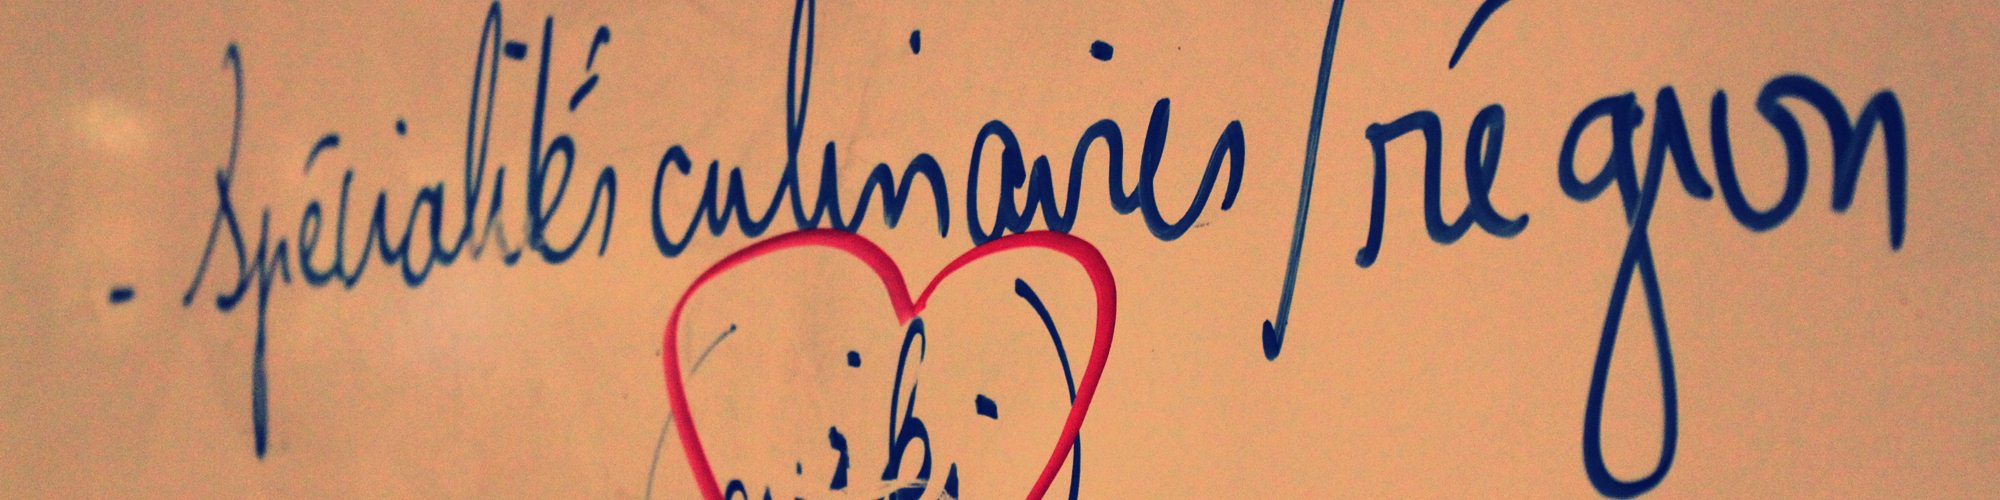 - Spécialités culinaires / région